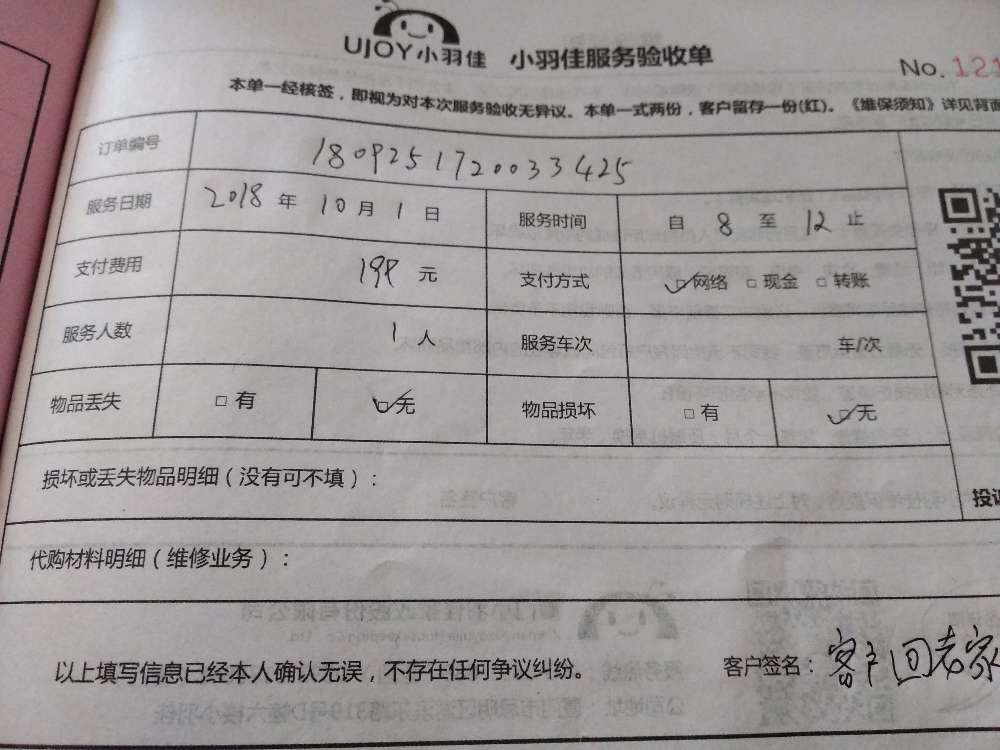 UJOY小羽佳 小羽佳服务验收单
No. 121
本单一经核签，即视为对本次服务验收无异议。本单一式两份，客户留存一份(红)。《维保须知》详见背面
订单编号 180925172003 3425
服务日期 2018 年 10 月 1 日 服务时间 自 8 至 12 止
支付费用 198 元 支付方式 ☑网络 □现金 □转账
服务人数 1 人 服务车次 车/次
物品丢失 □有 ☑无 物品损坏 □有 ☑无
损坏或丢失物品明细（没有可不填）：
投诉
代购材料明细（维修业务）：
以上填写信息已经本人确认无误，不存在任何争议纠纷。 客户签名：客户回老家